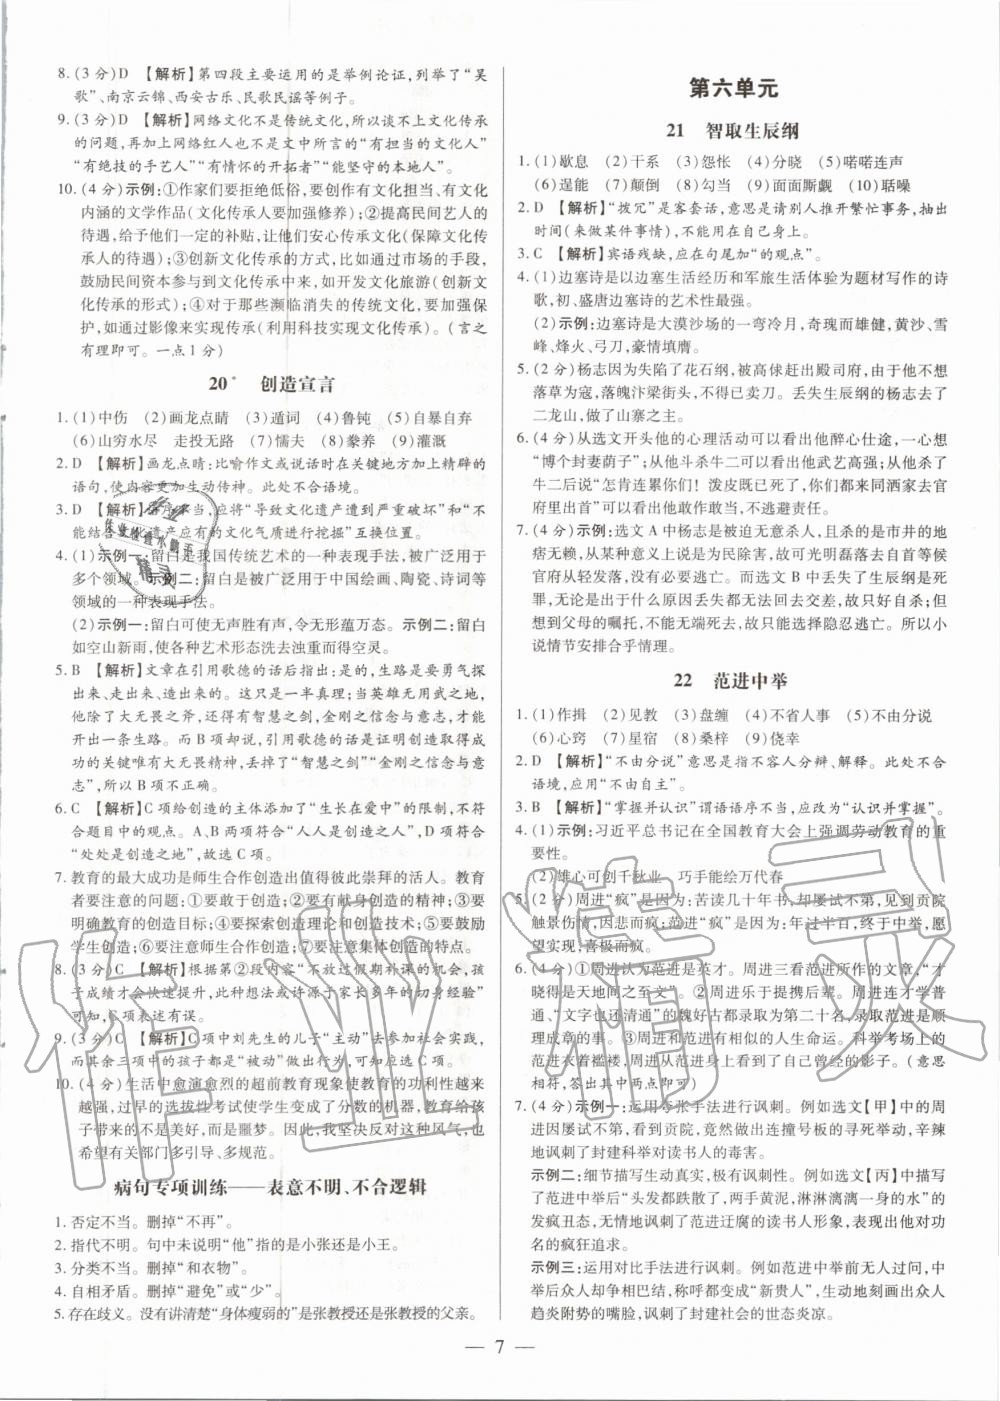 8. (3分)D 【解析】第四段主要运用的是举例论证,列举了“吴
歌”、南京云锦、西安古乐、民歌民谣等例子。
9. (3分)D 【解析】网络文化不是传统文化,所以谈不上文化传承
的问题,再加上网络红人也不是文中所言的“有担当的文化人”
“有绝技的手艺人”“有情怀的开拓者”“能坚守的本地人”。
10. (4分)示例:①作家们要拒绝低俗,要创作有文化担当、有文化
内涵的文学作品(文化传承人要加强修养);②提高民间艺人的
待遇,给予他们一定的补贴,让他们安心传承文化(保障文化传
承人的待遇);③创新文化传承的方式,比如通过市场的手段,
鼓励民间资本参与到文化传承中来,如开发文化旅游(创新文
化传承的形式);④对于那些濒临消失的传统文化,要加强保
护,如通过影像来实现传承(利用科技实现文化传承)。(言之
有理即可。一点1分)
20* 创造宣言
1. (1)中伤 (2)画龙点睛 (3)遁词 (4)鲁钝 (5)自暴自弃
(6)山穷水尽 走投无路 (7)懦夫 (8)豢养 (9)灌溉
2. D 【解析】画龙点睛:比喻作文或说话时在关键地方加上精辟的
语句,使内容更加生动传神。此处不合语境。
3. D 【解析】语序不当,应将“导致文化遗产遭到严重破坏”和“不
能结合文化遗产应有的文化气质进行挖掘”互换位置。
4. (1)示例一:留白是我国传统艺术的一种表现手法,被广泛用于
多个领域。示例二:留白是被广泛用于中国绘画、陶瓷、诗词等
领域的一种表现手法。
(2)示例一:留白可使无声胜有声,令无形蕴万态。示例二:留白
如空山新雨,使各种艺术形态洗尽浊重而得空灵。
5. B 【解析】文章在引用歌德的话后指出:是的,生路是要勇气探
出来、走出来、造出来的。这只是一半真理;当英雄无用武之地,
他除了大无畏之斧,还得有智慧之剑,金刚之信念与意志,才能
开出一条生路。而B项却说,引用歌德的话是证明创造取得成
功的关键唯有大无畏的精神,丢掉了“智慧之剑”“金刚之信念
与意志”,所以B项不正确。
6. C 【解析】C项给创造的主体添加了“生长在爱中”的限制,不符
合题目中的观点。A、B两项符合“人人是创造之人”,D项符合
“处处是创造之地”,故选C项。
7. 教育的最大成功是师生合作创造出值得彼此崇拜的活人。教育
者要注意的问题:①要敢于创造;②要有献身创造的精神;③要
明确教育的创造目标;④要探索创造理论和创造技术;⑤要鼓励
学生创造;⑥要注意师生合作创造;⑦要注意集体创造的特点。
8. (3分)C 【解析】根据第②段内容“不放过假期补课的机会,孩
子成绩才会快速提升,此种想法或许源于家长多年的切身经验”
可知,C项表述有误。
9. (3分)C 【解析】C项中刘先生的儿子“主动”去参加社会实践,
而其余三项中的孩子都是“被动”做出行为,可知应选C项。
10. (4分)生活中愈演愈烈的超前教育现象使教育的功利性越来
越强,过早的选拔性考试使学生变成了分数的机器,教育给孩
子带来的不是美好,而是噩梦。因此,我坚决反对这种风气,也
希望有关部门多引导、多规范。
病句专项训练——表意不明、不合逻辑
1. 否定不当。删掉“不再”。
2. 指代不明。句中未说明“他”指的是小张还是小王。
3. 分类不当。删掉“和衣物”。
4. 自相矛盾。删掉“避免”或“少”。
5. 存在歧义。没有讲清楚“身体瘦弱的”是张教授还是张教授的父亲。
第六单元
21 智取生辰纲
1. (1)歇息 (2)干系 (3)怨怅 (4)分晓 (5)喏喏连声
(6)逞能 (7)颠倒 (8)勾当 (9)面面厮觑 (10)聒噪
2. D 【解析】“拨冗”是客套话,意思是请别人推开繁忙事务,抽出
时间(来做某件事情),不能用在自己身上。
3. C 【解析】宾语残缺,应在句尾加“的观点”。
4. (1)边塞诗是以边塞生活经历和军旅生活体验为题材写作的诗
歌,初、盛唐边塞诗的艺术性最强。
(2)示例:边塞诗是大漠沙场的一弯冷月,奇瑰而雄健,黄沙、雪
峰、烽火、弓刀,豪情填膺。
5. (2分)杨志因为失陷了花石纲,被高俅赶出殿司府,由于他不想
落草为寇,落魄汴梁街头,不得已卖刀。丢失生辰纲的杨志去了
二龙山,做了山寨之主。
6. (4分)从选文开头他的心理活动可以看出他醉心仕途,一心想
“博个封妻荫子”;从他斗杀牛二可以看出他武艺高强;从他杀了
牛二后说“怎肯连累你们!泼皮既已死了,你们都来同洒家去官
府里出首”可以看出他做事有原则,不逃避责任。
7. (4分)示例:选文A中杨志是被迫无意杀人,且杀的是市井的地
痞无赖,从某种意义上说是为民除害,故可光明磊落去自首等候
官府从轻发落,没必要逃亡。而选文B中丢失了生辰纲是死
罪,无论出于什么原因丢失都无法回去交差,故只好自杀;但是
想到父母的嘱托,不能无端死去,故又只能选择隐忍逃亡。所以小
说情节安排合乎情理。
22 范进中举
1. (1)作揖 (2)见教 (3)盘缠 (4)不省人事 (5)不由分说
(6)心窍 (7)星宿 (8)桑梓 (9)侥幸
2. D 【解析】“不由分说”意思是指不容人分辩、解释。此处不合
语境,应用“不由自主”。
3. B 【解析】“掌握并认识”谓语语序不当,应改为“认识并掌握”。
4. (1)示例:习近平总书记在全国教育大会上强调劳动教育的重
要性。
(2)雄心可创千秋业 巧手能绘万代春
5. (2分)周进“疯”的原因:苦读几十年书,却屡试不第,见到贡院
触景伤情,因悲而疯;范进“疯”的原因:年过半百,一妙中举,愿
望实现,喜极而疯。
6. (4分)①周进认为范进是英才。周进三看范进所作的文章,“才
晓得是天地间之至文”。②周进乐于提携后辈。周进连学业普
通、“文字也还清通”的魏好古都录取为第二十名,录取范进是顺
理成章的事。③周进和范进有着相似的人生命运。科举考场上的
范进衣着褴褛,周进从范进身上看到了自己曾经的影子。(意思
相符,答出其中两点即可)
7. (4分)示例一:运用夸张手法进行讽刺。例如选文【甲】中的周
进因屡试不第,看到贡院,竟然做出连撞号板的寻死举动,辛辣
地讽刺了封建科举对读书人的毒害。
示例二:细节描写生动真实,极有讽刺性。例如选文【丙】中描写
了范进中举后“头发都跌散了,两手黄泥,淋淋漓漓一身的水”的
发疯丑态,无情地讽刺了范进迂腐的读书人形象,表现出他对功
名的疯狂追求。
示例三:运用对比手法进行讽刺。例如范进中举前无人过问,中
举后众人却争相巴结,称呼都变成“新贵人”,生动地刻画了众人
趋炎附势的嘴脸,讽刺了封建社会的世态炎凉。
— 7 —
作业精灵